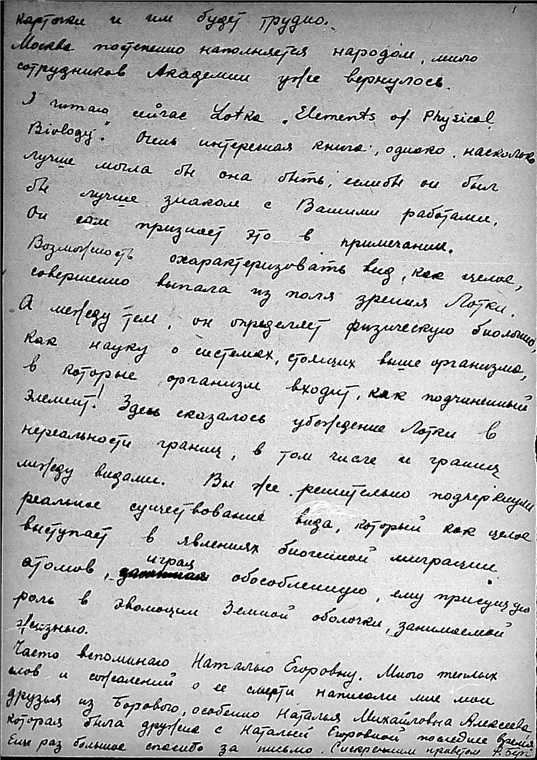 карточки и им будет трудно.
Москва постепенно наполняется народом, много
сотрудников Академии уже вернулось.
Я читаю сейчас Lotka „Elements of Physical
Biology“. Очень интересная книга, однако, насколько
лучше могла бы она быть, еслибы он был
бы лучше знаком с Вашими работами.
Он сам признает это в примечании.
Возможность охарактеризовать вид, как целое,
совершенно выпала из поля зрения Лотки.
А между тем, он определяет физическую биологию,
как науку о системах, стоящих выше организма,
в которые организм входит, как подчиненный
элемент! Здесь сказалось убеждение Лотки в
нереальности границ, в том числе и границ
между видами. Вы же решительно подчеркнули
реальное существование вида, который как целое
выступает в явлениях биогенной миграции
атомов, играя обособленную, ему присущую
роль в эволюции Земной оболочки, занимаемой
жизнью.
Часто вспоминаю Наталью Егоровну. Много теплых
слов и сожалений о ее смерти написали мне мои
друзья из Борового, особенно Наталья Михайловна Алексеева
которая была дружна с Натальей Егоровной последнее время
Еще раз большое спасибо за письмо. С искренним приветом